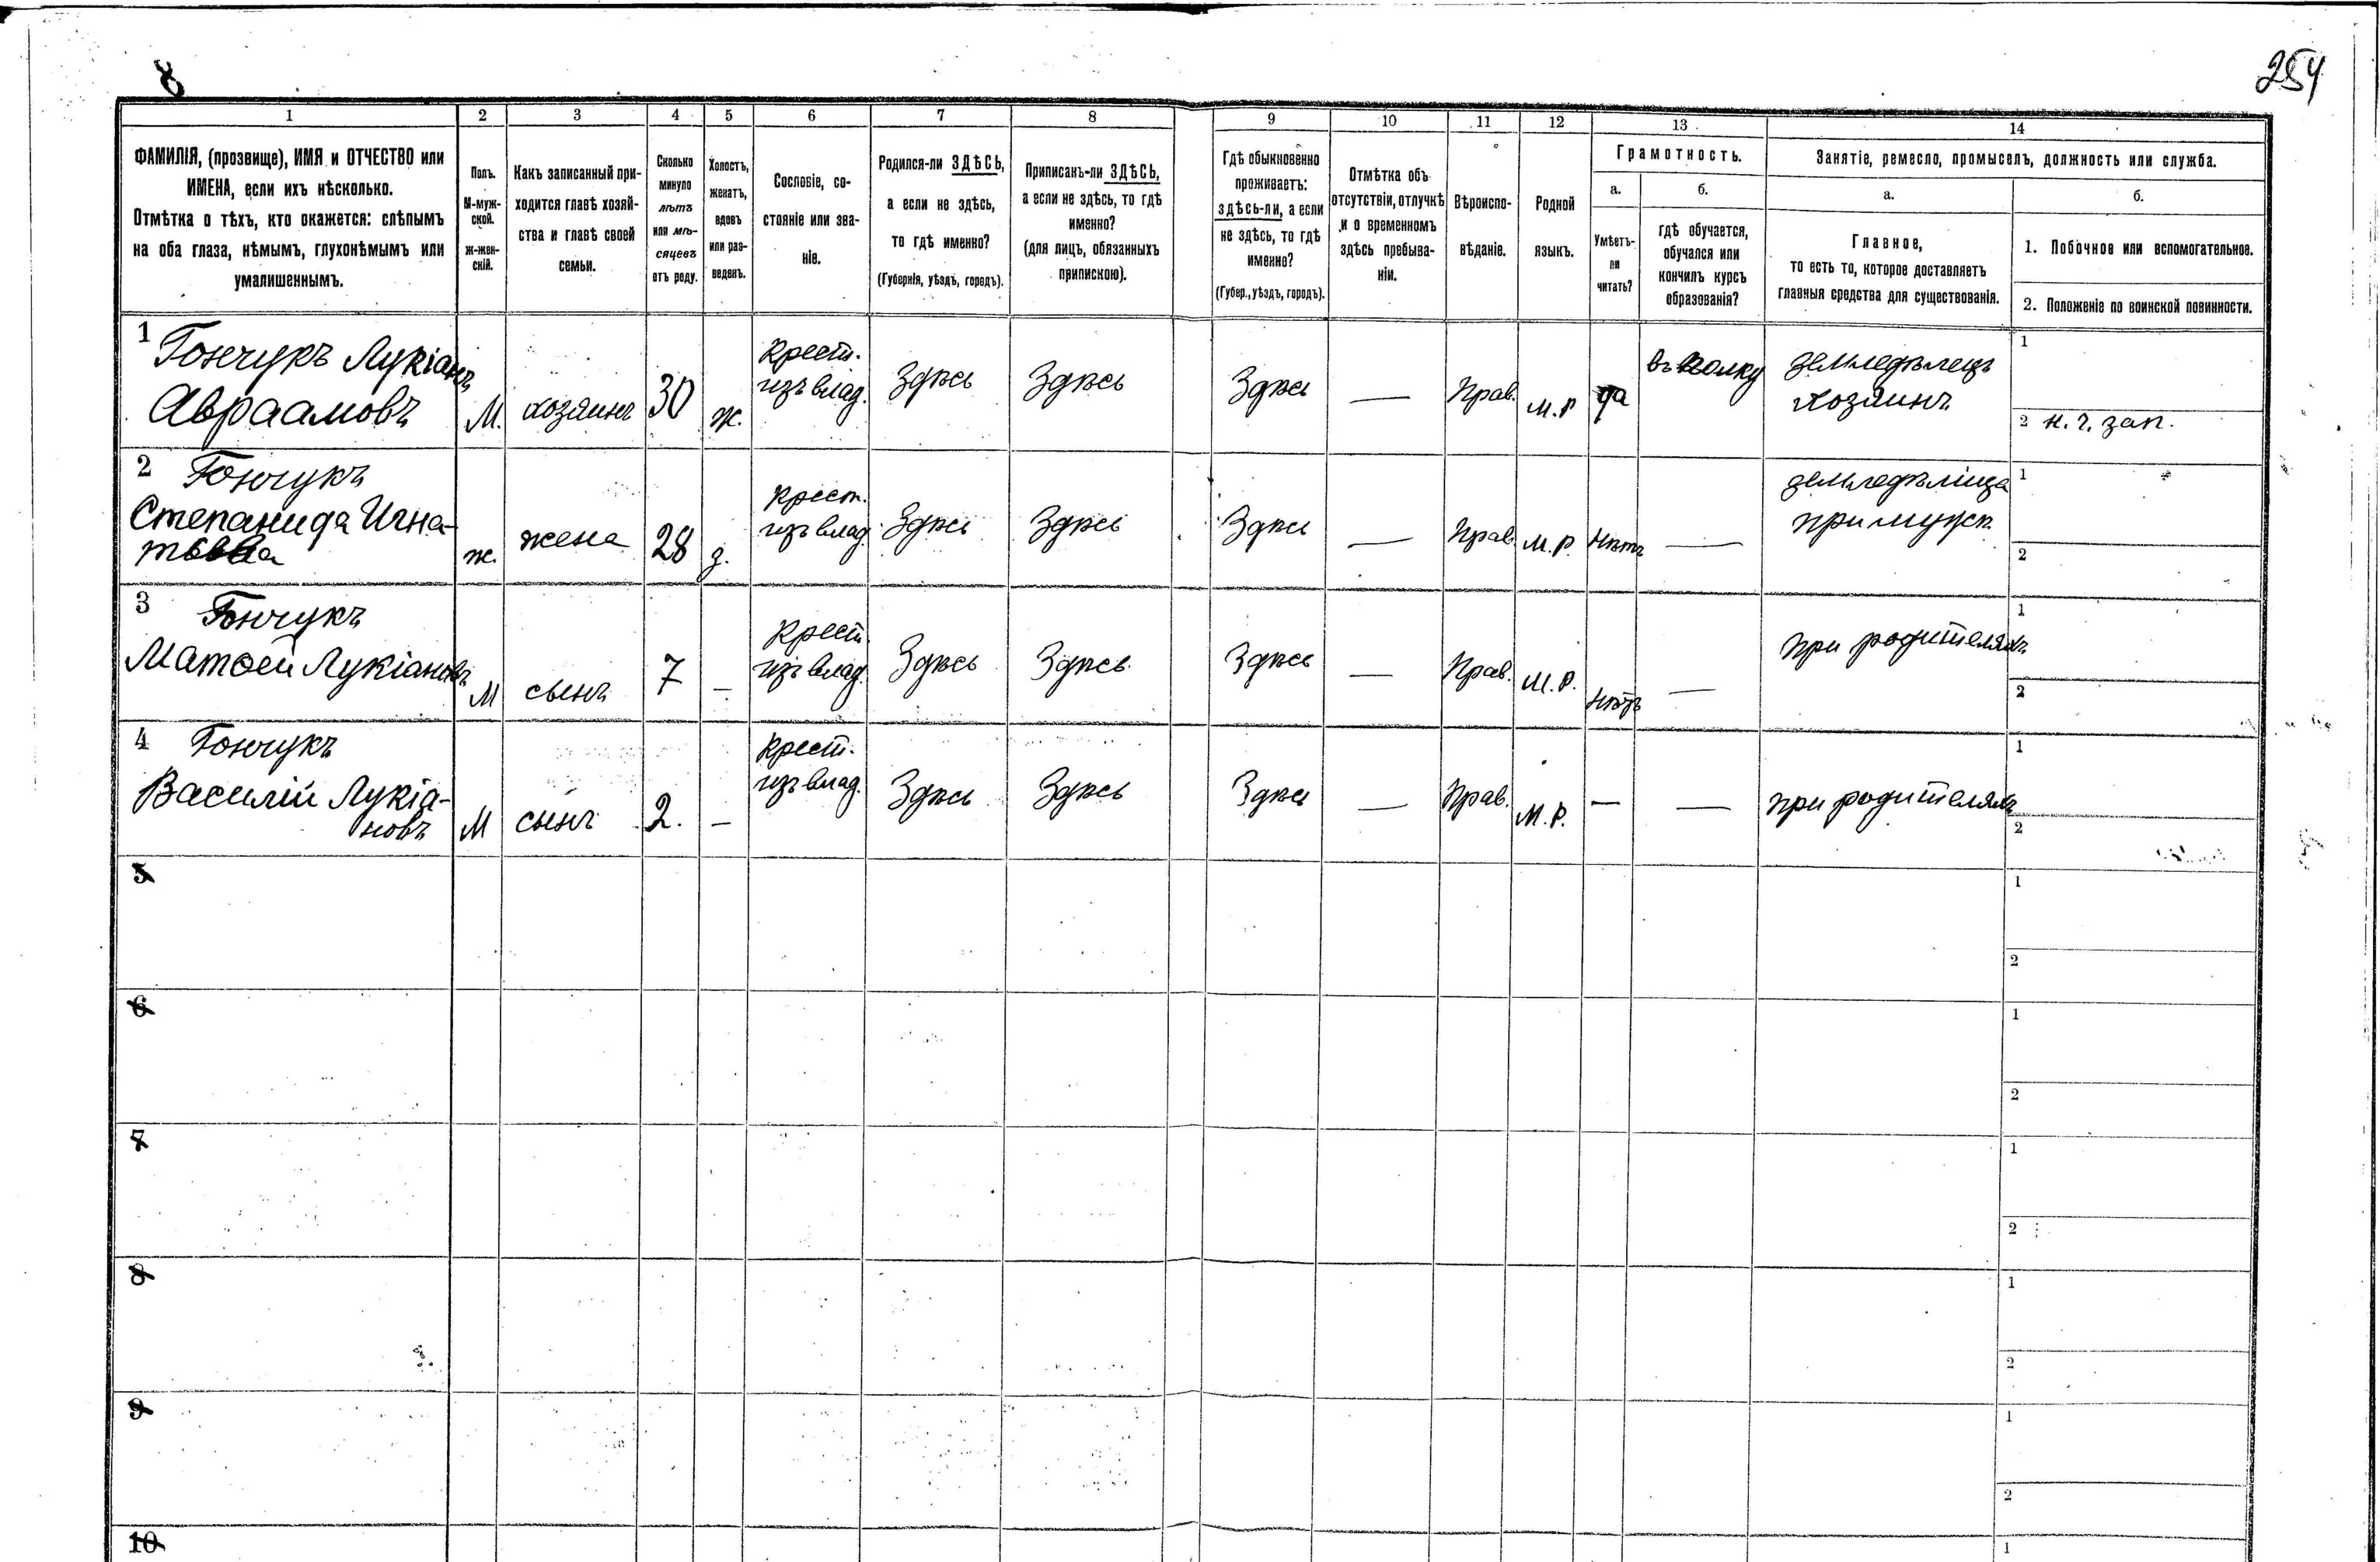 8
254
1
2
3
4
5
6
7
8
9
10
11
12
13
14
ФАМИЛІЯ, (прозвище), ИМЯ и ОТЧЕСТВО или
ИМЕНА, если ихъ нѣсколько.
Отмѣтка о тѣхъ, кто окажется: слѣпымъ
на оба глаза, нѣмымъ, глухонѣмымъ или
умалишеннымъ.
Полъ.
М-муж-
ской.
ж-жен-
скій.
Какъ записанный при-
ходится главѣ хозяй-
ства и главѣ своей
семьи.
Сколько
минуло
лѣтъ
или мѣ-
сяцевъ
отъ роду.
Холостъ,
женатъ,
вдовъ
или раз-
веденъ.
Сословіе, со-
стояніе или зва-
ніе.
Родился-ли ЗДѢСЬ,
а если не здѣсь,
то гдѣ именно?
(Губернія, уѣздъ, городъ).
Приписанъ-ли ЗДѢСЬ,
а если не здѣсь, то гдѣ
именно?
(для лицъ, обязанныхъ
припискою).
Гдѣ обыкновенно
проживаетъ:
здѣсь-ли, а если
не здѣсь, то гдѣ
именно?
(Губер., уѣздъ, городъ).
Отмѣтка объ
отсутствіи, отлучкѣ
и о временномъ
здѣсь пребыва-
ніи.
Вѣроиспо-
вѣданіе.
Родной
языкъ.
Грамотность.
а.
б.
Умѣетъ-
ли
читать?
гдѣ обучается,
обучался или
кончилъ курсъ
образованія?
Занятіе, ремесло, промыселъ, должность или служба.
а.
б.
Главное,
то есть то, которое доставляетъ
главныя средства для существованія.
1. Побочное или вспомогательное.
2. Положеніе по воинской повинности.
1
Гончукъ Лукіанъ
Авраамовъ
М.
хозяинъ
30
ж.
Крест.
изъ влад.
Здѣсь
Здѣсь
Здѣсь
—
Прав.
М.Р
да
въ полку
земледѣлецъ
хозяинъ
1
2 н. ч. зап.
2
Гончукъ
Степанида Игна-
тьевна
ж.
жена
28
з.
Крест.
изъ влад.
Здѣсь
Здѣсь
Здѣсь
—
Прав.
М.Р.
нѣтъ
—
земледѣліца
при мужѣ
1
2
3
Гончукъ
Матѳей Лукіановъ
М
сынъ
7
—
Крест.
изъ влад.
Здѣсь
Здѣсь
Здѣсь
—
Прав.
М.Р.
нѣтъ
—
при родителяхъ
1
2
4
Гончукъ
Василій Лукіа-
новъ
М
сынъ
2.
—
Крест.
изъ влад.
Здѣсь
Здѣсь
Здѣсь
—
Прав.
М.Р.
—
—
при родителяхъ
1
2
5
1
2
6
1
2
7
1
2
8
1
2
9
1
2
10
1